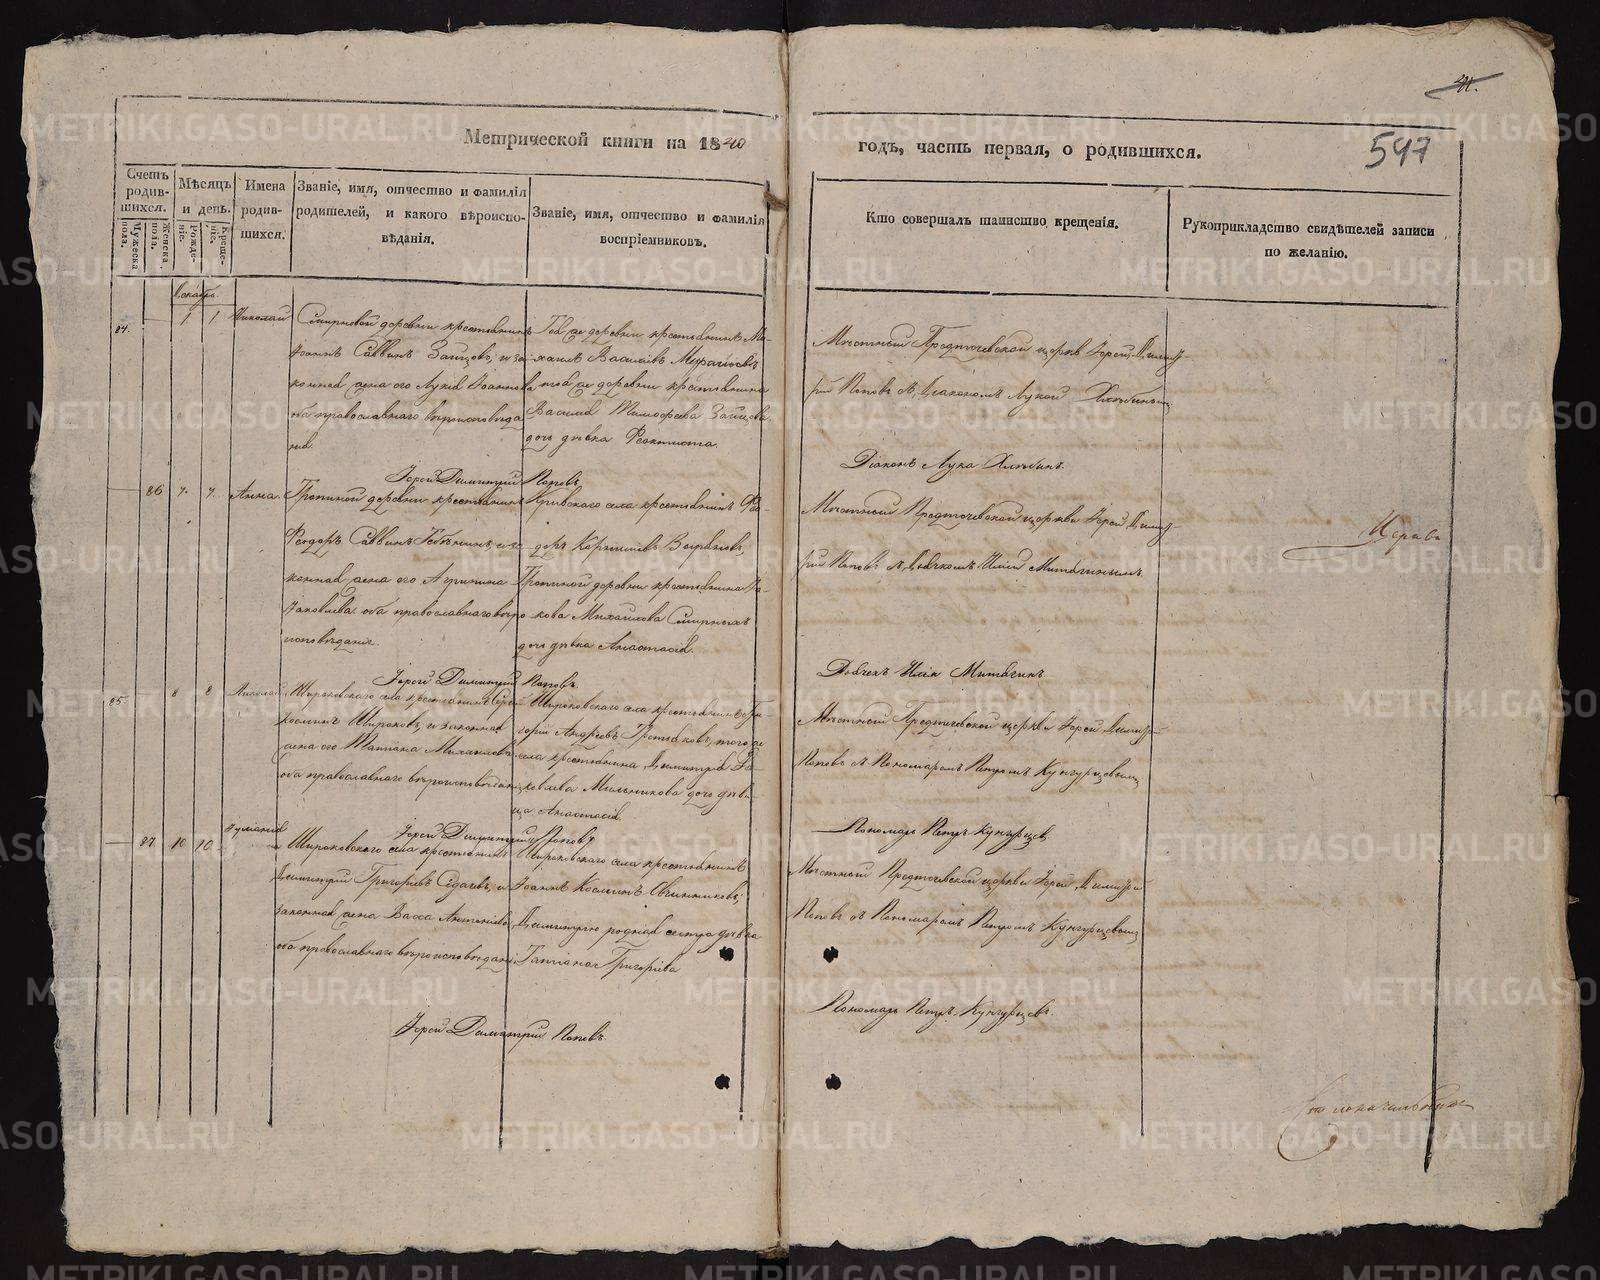 41.
547
Метрической книги на 1840
годъ, часть первая, о родившихся.
Счетъ родив-
шихся.
Мужеска пола.
Женска пола.
Мѣсяцъ
и день.
Рожде-
ніе.
Креще-
ніе.
Имена
родив-
шихся.
Званіе, имя, отчество и фамилія
родителей, и какого вѣроиспо-
вѣданія.
Званіе, имя, отчество и фамилія
воспріемниковъ.
Кто совершалъ таинство крещенія.
Рукоприкладство свидѣтелей записи
по желанію.
84.
1
1
Николай
Смирновой деревни крестьянинъ
Іоаннъ Саввинъ Зайцовъ, и за-
конная жена его Іоаннова
оба православнаго вѣроисповѣда
нія.
Той же деревни крестьянинъ Ми-
хаилъ Васильевъ
той же деревни крестьянина
Василія Тимофеева Зайцова
дочь дѣвка Феоктиста.
Мѣстный Предтечевской церкви Іерей Димит-
рій Поповъ съ Діакономъ Лукой
Діаконъ Лука
Іерей Димитрій Поповъ.
86
7.
7.
Анна.
деревни крестьянинъ
Феодоръ Саввинъ и за-
конная жена его Агрипина
Яковлева оба православнаго вѣро
исповѣданія.
Кривскаго села крестьянинъ Фео-
доръ Корниловъ
деревни крестьянина Я-
кова Михайлова Смирныхъ
дочь дѣвка Анастасія.
Мѣстный Предтечевской церкви Іерей Димит-
рій Поповъ съ Дьячкомъ Иліей Митягинымъ.
Дьячекъ Илія Митягинъ
Іерей Димитрій Поповъ.
85.
8
8
Николай
Широковскаго села крестьянинъ Сергей
Космин Широковъ, и законная
жена его Татіана Михайлова
оба православнаго вѣроисповѣданія
Широковскаго села крестьянинъ Гри-
горій Андреевъ Третьяковъ, того же
села крестьянина Димитрія Я-
ковлева Мыльникова дочь дѣви-
ца Анастасія
Мѣстный Предтечевской церкви Іерей Димитрій
Поповъ съ Пономаремъ Петромъ Кунгурцовымъ
Пономарь Петръ Кунгурцовъ
Іерей Димитрій Поповъ
87
10
10
Іуліанія
Широковскаго села крестьянинъ
Димитрій Григорьевъ Седачевъ, и
законная жена Васса Антонова
оба православнаго вѣроисповѣданія
Широковскаго села крестьянинъ
Іоаннъ Космин Овчинниковъ,
Димитрію родная сестра дѣвка
Татіана Григоріева
Мѣстный Предтечевской церкви Іерей Димитрій
Поповъ съ Пономаремъ Петромъ Кунгурцовымъ
Пономарь Петръ Кунгурцовъ.
Іерей Димитрій Поповъ.
METRIKI.GASO-URAL.RU